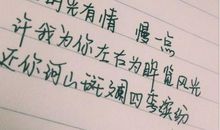 光有情 慢点
许我为你左右为眸览风光
还你河山斑斓四季缤纷